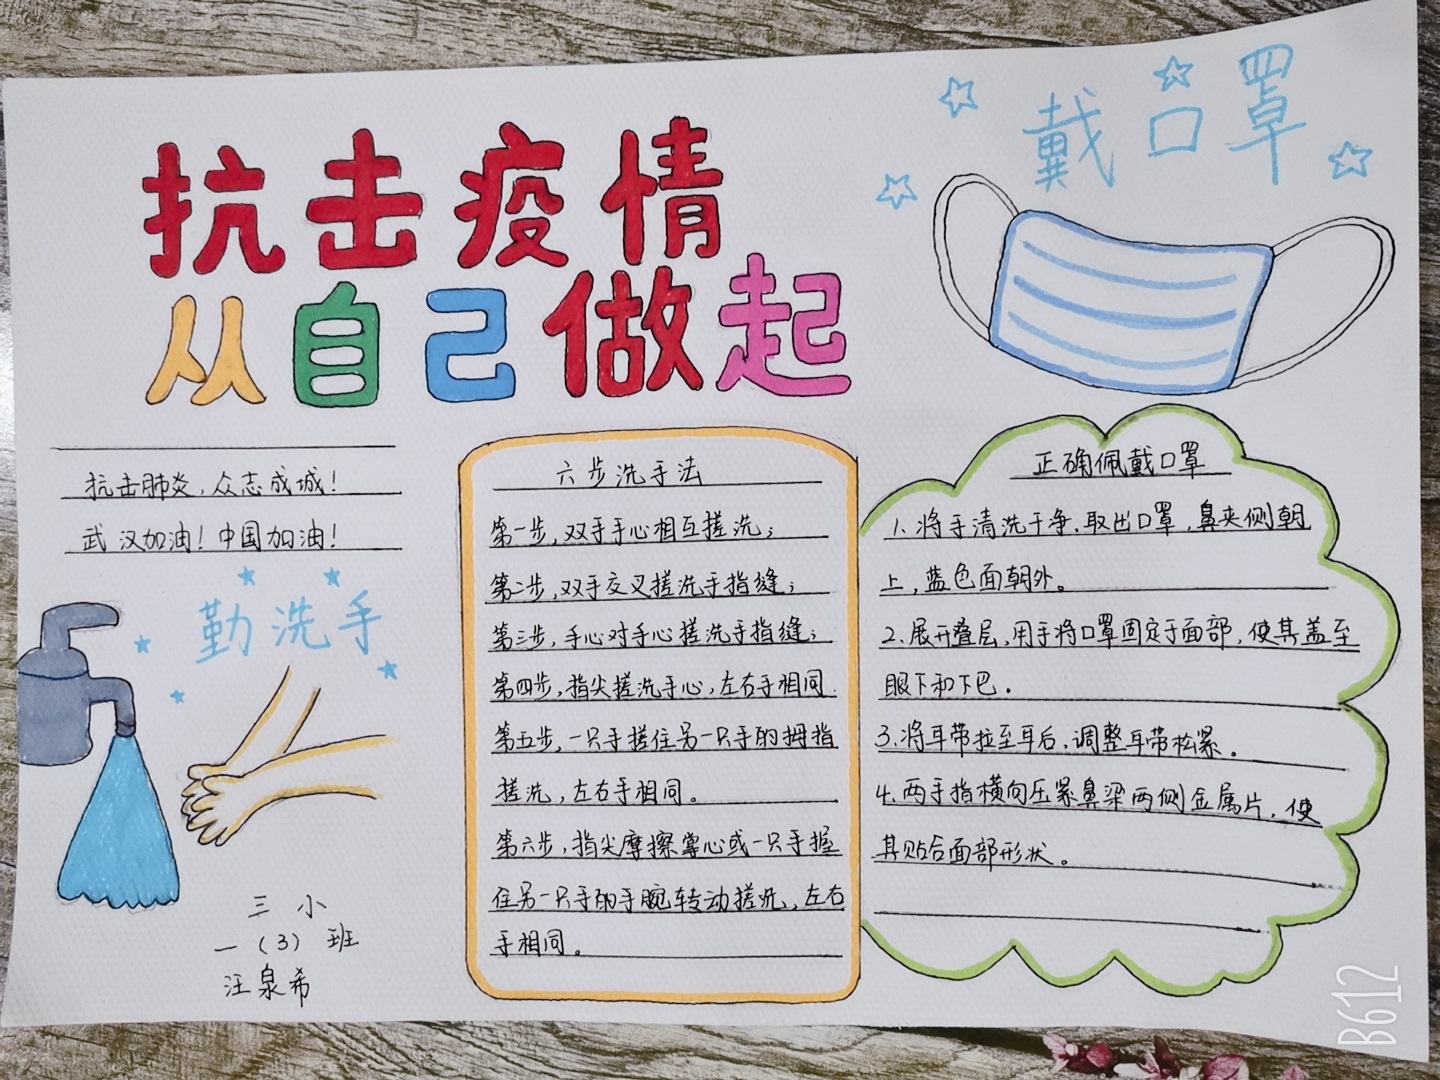 抗击疫情
从自己做起
戴口罩
抗击肺炎，众志成城！
武汉加油！中国加油！
勤洗手
三小
一（3）班
汪泉希
六步洗手法
第一步，双手手心相互搓洗；
第二步，双手交叉搓洗手指缝；
第三步，手心对手心搓洗手指缝；
第四步，指尖搓洗手心，左右手相同.
第五步，一只手搓住另一只手的拇指
搓洗，左右手相同。
第六步，指尖摩擦掌心或一只手握
住另一只手的手腕转动搓洗，左右
手相同。
正确佩戴口罩
1.将手清洗干净.取出口罩，鼻夹侧朝
上，蓝色面朝外。
2.展开叠层，用手将口罩固定于面部，使其盖至
眼下和下巴。
3.将耳带拉至耳后，调整耳带松紧。
4.两手指横向压紧鼻梁两侧金属片，使
其贴合面部形状。
B612